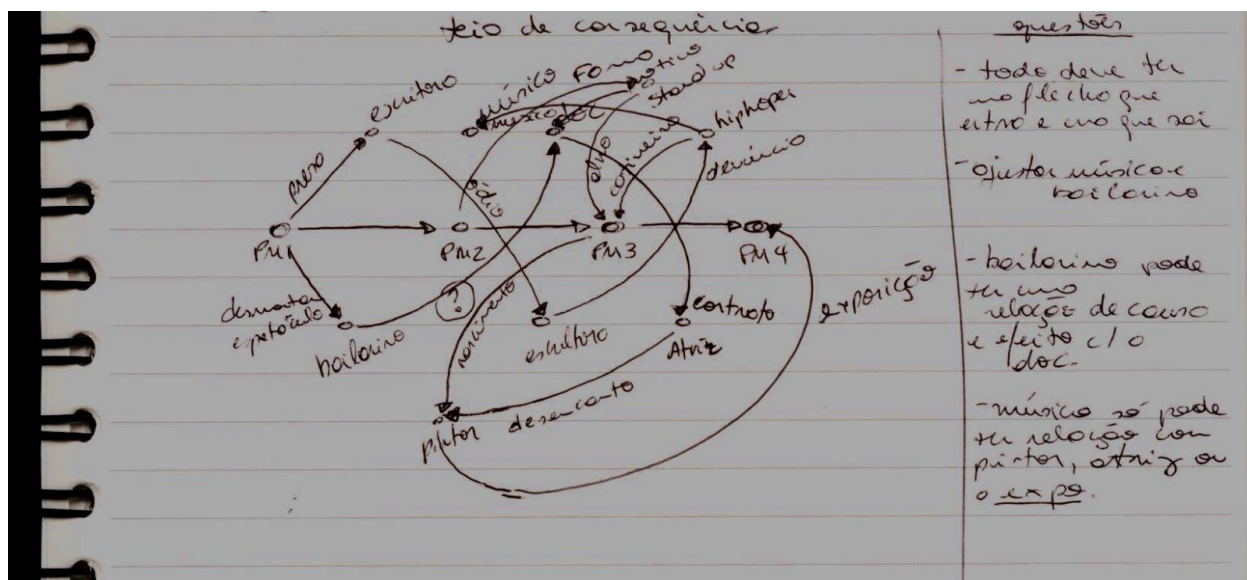 teia de consequências
questões
escritora
músico
Fama
motivo
stand up
músico
doc
hiphoper
preso
ódio
carinero
denúncia
PM1
PM2
PM3
PM4
desmonta
espetáculo
bailarino
?
nascimento
escultora
contrato
Atriz
exposição
pintor
desencanto
- todo deve ter
uma flecha que
entra e uma que sai
- ajustar músico e
bailarino
- bailarino pode
ter uma
relação de causa
e efeito c/ o
doc.
- músico só pode
ter relação com
pintor, atriz ou
a expo.